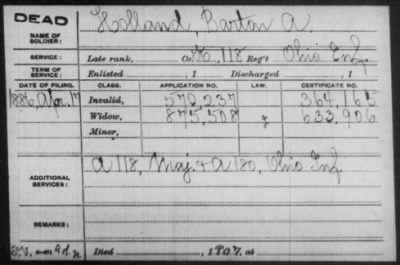 DEAD
NAME OF SOLDIER: Holland, Barton A
SERVICE: Late rank, Co. K, 118 Reg't Ohio Inf.
TERM OF SERVICE: Enlisted , 1 Discharged , 1
DATE OF FILING. CLASS. APPLICATION NO. LAW. CERTIFICATE NO.
1886, Apr. 17 Invalid, 570,237 364,165
Widow, 875,508 g 633,906
Minor,
ADDITIONAL SERVICES: A 118, Maj. & A 180, Ohio Inf.
REMARKS:
Died , 1907, at